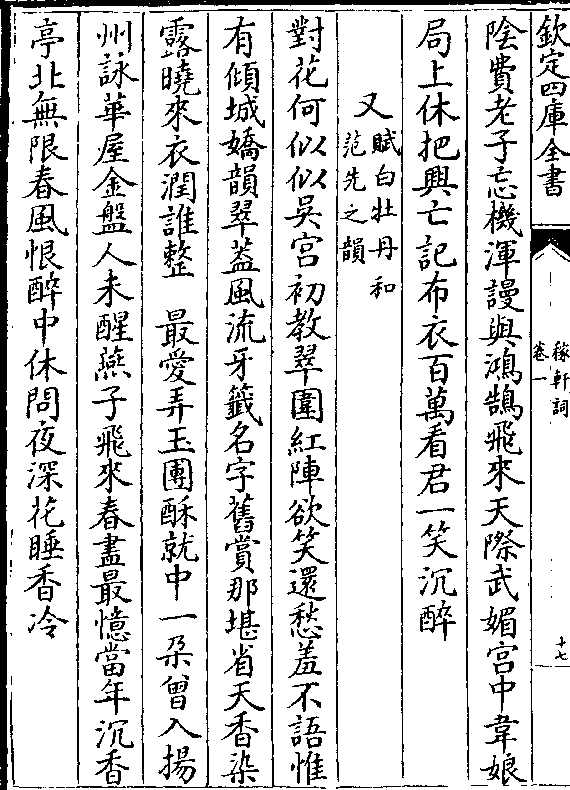 欽定四庫全書
稼軒詞
卷一
十七
陰費老子忘機渾謾與鴻鵠飛來天際武媚宮中韋娘
局上休把興亡記布衣百萬看君一笑沉醉
又賦白牡丹和
范先之韻
對花何似似吳宮初教翠圍紅陣欲笑還愁羞不語惟
有傾城嬌韻翠蓋風流牙籤名字舊賞那堪省天香染
露曉來衣潤誰整　最愛弄玉團酥就中一朶曾入揚
州詠華屋金盤人未醒燕子飛來春盡最憶當年沉香
亭北無限春風恨醉中休問夜深花睡香冷